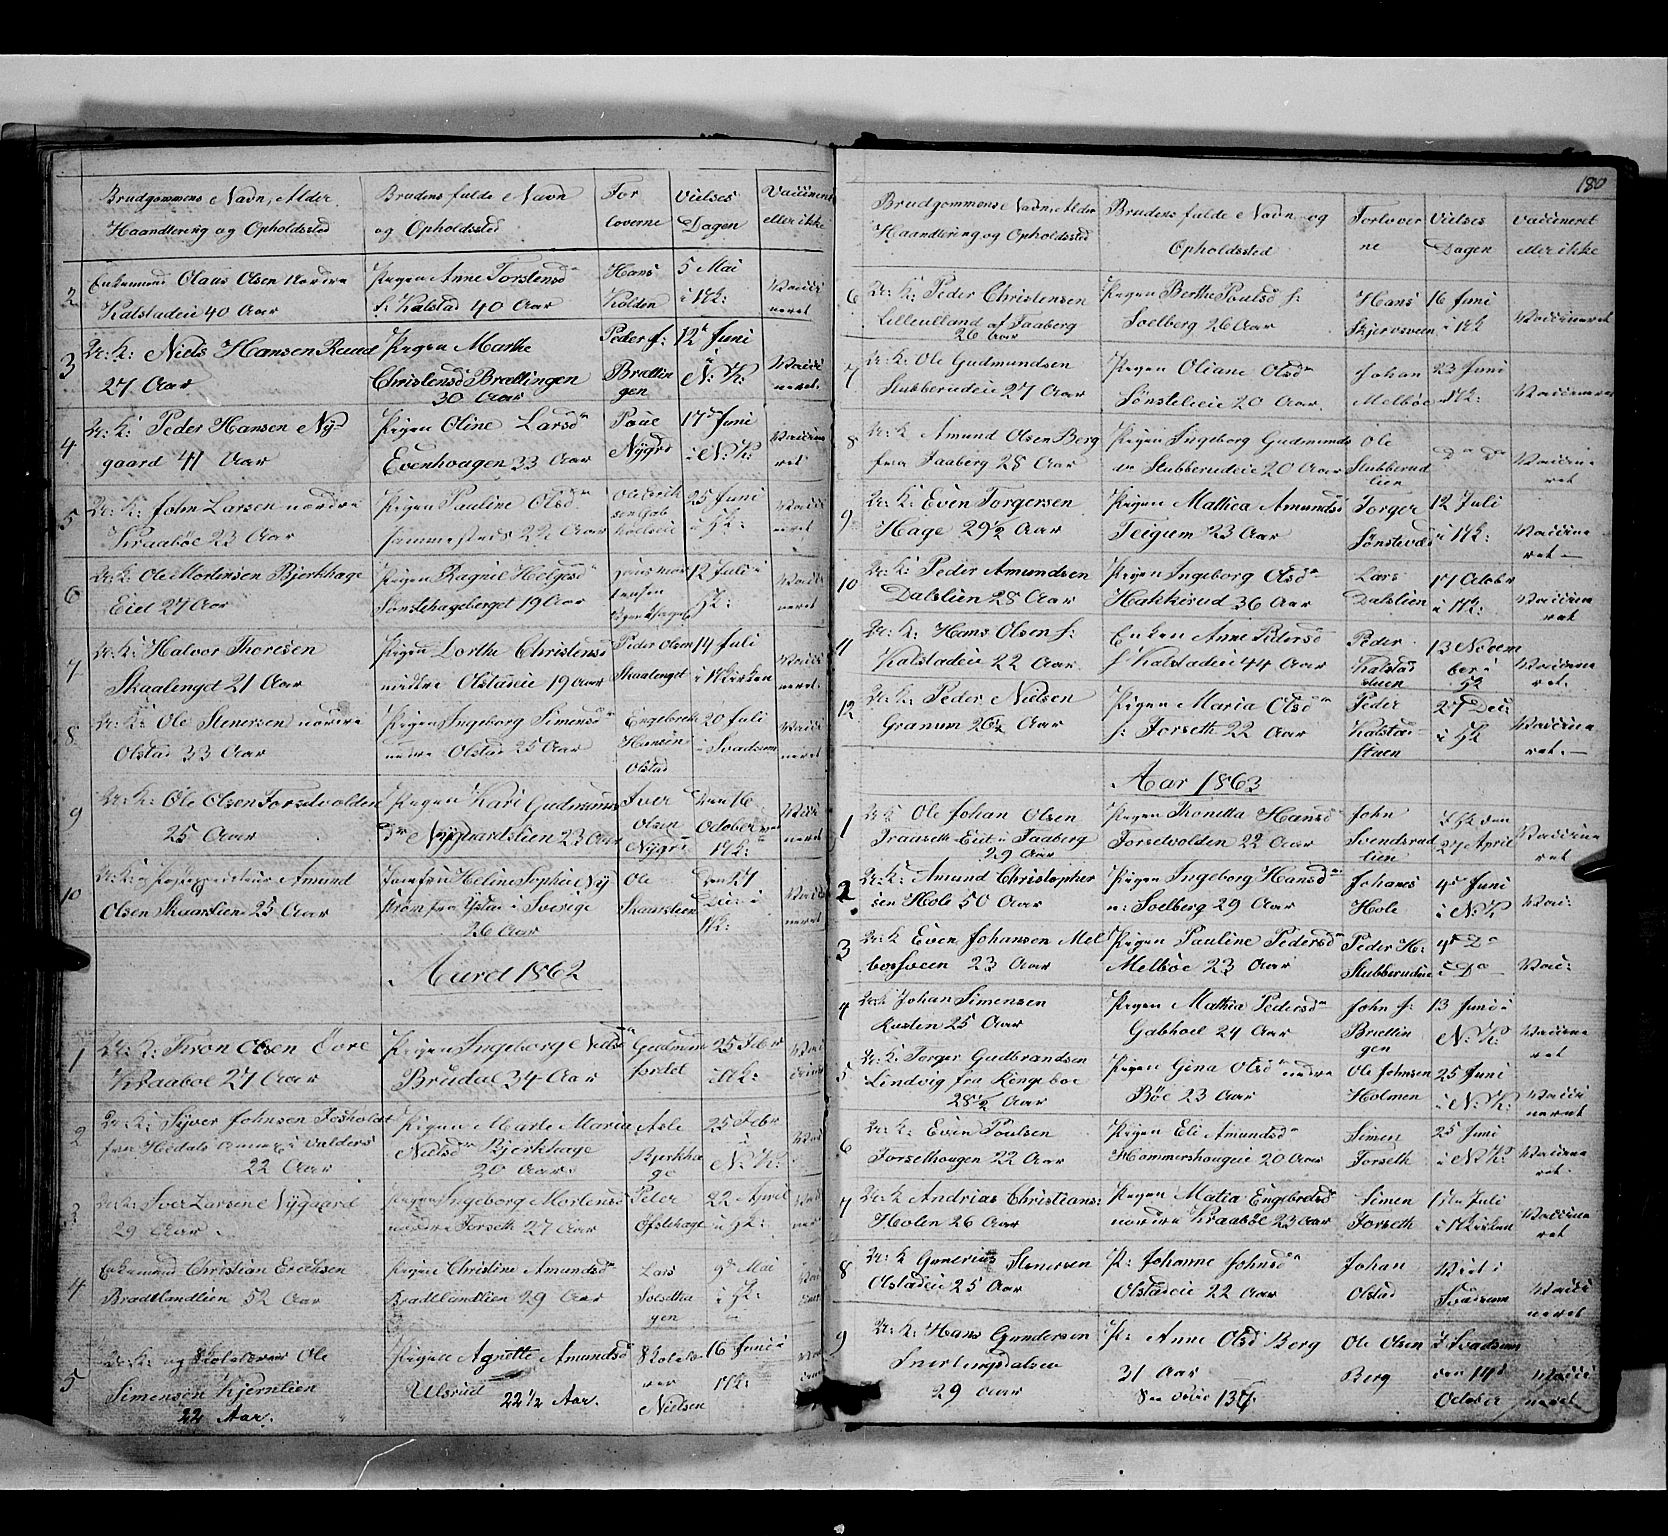 Brudgommens Navn, Alder
Haandtering og Opholdssted
Brudens fulde Navn
og Opholdssted
For
loverne
Vielses
Dagen
Vaccineret
eller ikke
2
Enkemand Olaus Olsen Nordre
Kalstadeie 40 Aar
Pigen Anne Torstensd
s: Kalstad 40 Aar
Hans
Kolden
5 Mai
i NK:
Vacci
neret
3
U: K: Niels Hansen Ruud
27 Aar
Pigen Marthe
Christensd Brættingen
30 Aar
Peder s:
Brættin
gen
12te Juni
i N: K:
Vacci
neret
4
U: K: Peder Hansen Ny-
gaard 41 Aar
Pigen Oline Larsd
Evenhaagen 33 Aar
Povel
Nygrd
17de Juni
i N: K:
Vaccine
ret
5
U: K: John Larsen nordre
Kraabøe 23 Aar
Pigen Pauline Olsd
22 Aar
25 Juni
i HK:
Vacci
neret
6
U: K: Ole Mortensen Bjerkhage
Eiet 27 Aar
Pigen Ragnil Helgesd
Sønstehageberget 19 Aar
12 Juli i
HK:
Vacci
neret
7
U: K: Halvor Thoresen
Skaalenget 21 Aar
Pigen Dorthe Christensd
nedre Olstadeie 19 Aar
Peder Olsen
Skaalenget
14 Juli
i NKirken
Vacci
neret
8
U: K: Ole Stenersen nordre
Olstad 33 Aar
Pigen Ingeborg Simensd
nedre Olstad 25 Aar
Engebreth
Hansen
Olstad
20 Juli
i Svadsum
Vacci
neret
9
U: K: Ole Olsen Forsetvolden
25 Aar
Pigen Kari Gudmunds
dr Nygaardslien 23 Aar
Iver
Olsen
Nygrd
Den 16
October
NK:
Vacci
neret
10
U: K: og Amund
Olsen Skaarslien 25 Aar
Jomfru Heline Sophie Ny
strøm fra Ystad i Sverige
26 Aar
Ole
Skaarslien
Den 27
Dec: i
NK:
Aaret 1862
1
U: K: Thron Olsen Øvre
Kraaboe 27 Aar
Pigen Ingeborg Nielsd
Brudal 34 Aar
Gudmund
25 Febr
i NK:
2
U: K: Syver Johnsen
fra Hedals Annex i Valders
22 Aar
Pigen Marte Maria
Nielsd Bjerkhage
20 Aar
Asle
Bjerkha
ge
25 Febr
i
N: K:
3
U: K: Iver Larsen Nygaard
29 Aar
Pigen Ingeborg Mortensd
nordre Forseth 27 Aar
Peter
Ofstehage
22 April
i HK:
4
Enkemand Christian Erichsen
Bradtlandlien 52 Aar
Pigen Christine Amundsd
Bradtlandlien 29 Aar
Lars
gen
9de Mai
i HK:
5
U: K: og Skolelærer Ole
Simensen Kjernlien
22 Aar.
Pigen Agnethe Amundsd
Ulsrud 22 1/2 Aar.
Skolelæ
rer
Nielsen
16 Juni i
NK:
180
Brudgommens Navn, Alder
Haandtering og Opholdssted
Brudens fulde Navn og
Opholdssted
Forlover
ne
Vielses
Dagen
Vaccineret
eller ikke
6
U: K: Peder Christensen
Lilleulland af Faaberg
26 Aar
Pigen Berthe Paulsd s:
Soelberg 26 Aar
Hans
Skjervsveen
16 Juni
i NK
Vaccineret
7
U: K: Ole Gudmundsen
Stubberudeie 27 Aar
Pigen Oliane Olsd
Sønstelieie 20 Aar
Johan
Melbøe
23 Juni
i NK:
Vaccineret
8
U: K Amund Olsen Berg
fra Faaberg 28 Aar
Pigen Ingeborg Gudmunds
dr Stubberudeie 20 Aar
Ole
Stubberud
lien
Do Do
Vaccine
ret
9
U: K: Even Torgersen
Hage 29 1/2 Aar
Pigen Mathea Amundsd
Teigum 23 Aar
Torger
Sønstevold
12 Juli
i NK:
Vaccine
ret —
10
U: K: Peder Amundsen
Dalslien 28 Aar
Pigen Ingeborg Olsd
Hakkerud 36 Aar
Lars
Dalslien
17 Octobr
i NK:
Vaccine
ret
11
U: K: Hans Olsen s:
Kalstadeie 22 Aar
Enken Anne Pedersd
s: Kalstadeie 44 Aar
Peder
Kalstad
stuen
13 Novem
ber i
HK
Vaccine
ret.
12
U: K: Peder Nielsen
Granum 26 1/2 Aar
Pigen Maria Olsd
s: Forseth 22 Aar
Peder
Kalstad-
stuen
27 Dec:
i HK
Vaccine
ret. —
Aar 1863
1
U: K Ole Johan Olsen
Eiet i Faaberg
29 Aar
Pigen Thonetta Hansd
Forsetvolden 22 Aar
John
Svendsrud
lien
I HK den
27 April
Vaccine
ret
2
U: K: Amund Christopher
sen Hole 50 Aar
Pigen Ingeborg Hansd
n: Soelberg 29 Aar
Johanes
Hole
4de Juni
i N: K
Vac:
3
U: K Even Johansen Mel
bosveen 23 Aar
Pigen Pauline Pedersd
Melbøe 23 Aar
Peder H:
Stubberudeie
4de Do
i Do
Vac:
4
U: K Johan Simensen
Rusten 25 Aar
Pigen Mathea Pedersd
Gabhoel 24 Aar
John s:
Brættin
gen
13 Juni i
N: K:
Vaccine
ret
5
U: K: Torger Gudbrandsen
Lindvig fra Ringeboe
28 1/2 Aar
Pigen Gina Olsd nedre
Bøe 23 Aar
Ole Johnsen
Holmen
25 Juni
i N: K:
Vacci
neret
6
U: K: Even Poulsen
Forsethougen 22 Aar
Pigen Eli Amundsd
Hammershaugeie 20 Aar
Simen
Forseth
25 Juni
i N: K:
Vaccine
ret.
7
U: K Andrias Christians:
Holen 26 Aar
Pigen Matea Engebretsd
nordre Kraabøe 23 Aar
Simen
Forseth
17de Juli
i NKirken
Vaccine
ret
8
U: K Gunerius Stenersen
Olstadeie 25 Aar
P: Johanne Johnsd
Olstadeie 22 Aar
Johan
Olstad
Viet i
Svadsum
Vacci
neret
9
U: K: Hans Gundersen
Snertingsdalen
29 Aar
P: Anne Olsd Berg
31 Aar
See side 137.
Ole Olsen
Berg
I Svadsum
den 14de
October
Vacci
neret